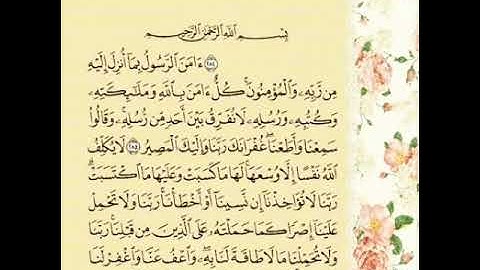 بِسْمِ اللَّهِ الرَّحْمَٰنِ الرَّحِيمِ
﴿٢٨٤﴾ ءَامَنَ الرَّسُولُ بِمَا أُنزِلَ إِلَيْهِ
مِن رَّبِّهِ وَالْمُؤْمِنُونَ ۚ كُلٌّ ءَامَنَ بِاللَّهِ وَمَلَٰٓئِكَتِهِ
وَكُتُبِهِ وَرُسُلِهِ لَا نُفَرِّقُ بَيْنَ أَحَدٍ مِّن رُّسُلِهِ ۚ وَقَالُوا
سَمِعْنَا وَأَطَعْنَا ۖ غُفْرَانَكَ رَبَّنَا وَإِلَيْكَ الْمَصِيرُ ﴿٢٨٥﴾ لَا يُكَلِّفُ
اللَّهُ نَفْسًا إِلَّا وُسْعَهَا ۚ لَهَا مَا كَسَبَتْ وَعَلَيْهَا مَا اكْتَسَبَتْ ۗ
رَبَّنَا لَا تُؤَاخِذْنَا إِن نَّسِينَا أَوْ أَخْطَأْنَا ۚ رَبَّنَا وَلَا تَحْمِلْ
عَلَيْنَا إِصْرًا كَمَا حَمَلْتَهُ عَلَى الَّذِينَ مِن قَبْلِنَا ۚ رَبَّنَا
وَلَا تُحَمِّلْنَا مَا لَا طَاقَةَ لَنَا بِهِ ۖ وَاعْفُ عَنَّا وَاغْفِرْ لَنَا